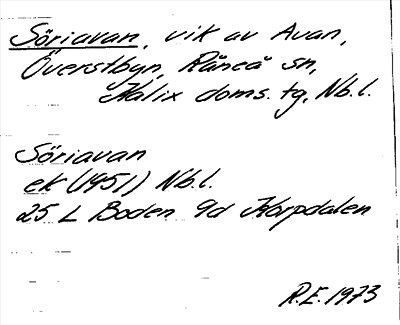 Söriavan, vik av Avan,
Överstbyn, Råneå sn,
Kalix doms. tg, Nb.l.
Söriavan
ek (1951) Nb.l.
25 L Boden 9d Korpdalen
R.E. 1973